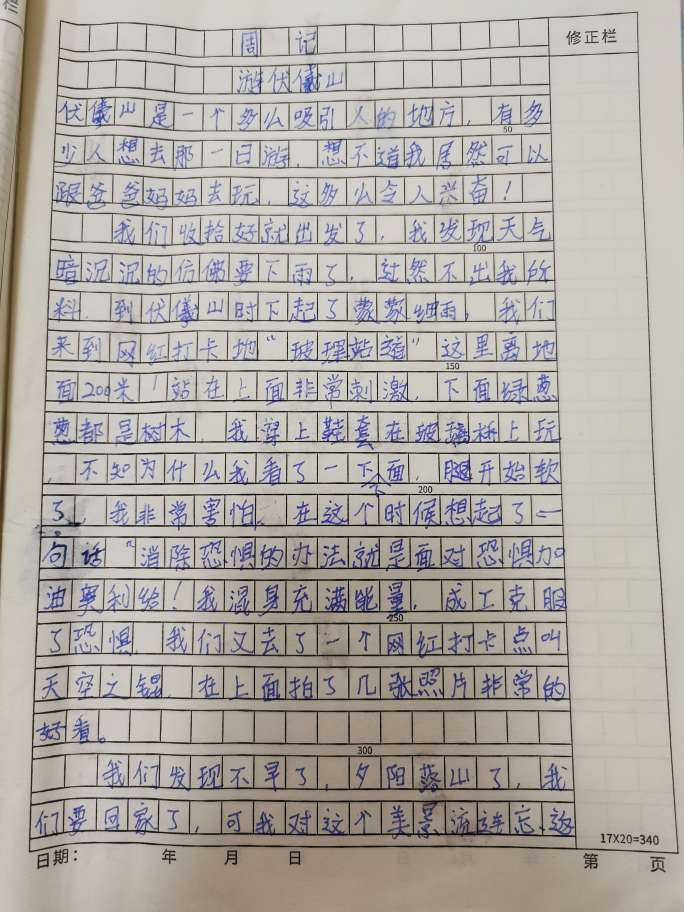 周记
修正栏
游伏儀山
伏儀山是一个多么吸引人的地方，有多
50
少人想去那一日游，想不道我居然可以
跟爸爸妈妈去玩，这多么令人兴奋！
我们收拾好就出发了，我发现天气
100
暗沉沉的仿佛要下雨了，过然不出我所
料，到伏儀山时下起了蒙蒙细雨，我们
来到网红打卡地“玻璃站道”这里离地
150
面200米，站在上面非常刺激，下面绿葱
葱都是树木，我穿上鞋套在玻璃桥上玩
，不知为什么我看了一下下面，腿开始软
200
了，我非常害怕，在这个时候想起了一
句话“消除恐惧的办法就是面对恐惧加
油奥利给！我混身充满能量，成工克服
250
了恐惧，我们又去了一个网红打卡点叫
天空之镜，在上面拍了几张照片非常的
好看。
300
我们发现不早了，夕阳落山了，我
们要回家了，可我对这个美景流连忘返
17X20=340
日期： 年 月 日 第 页